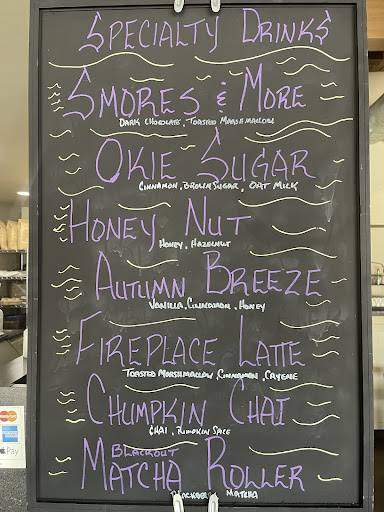 SPECIALTY DRINKS
SMORES & MORE
DARK CHOCOLATE, TOASTED MARSHMALLOW
OKIE SUGAR
CINNAMON, BROWN SUGAR, OAT MILK
HONEY NUT
HONEY, HAZELNUT
AUTUMN BREEZE
VANILLA, CINNAMON, HONEY
FIREPLACE LATTE
TOASTED MARSHMALLOW, CINNAMON, CAYENE
CHUMPKIN CHAI
CHAI, PUMPKIN SPICE
BLACKOUT
MATCHA ROLLER
MATCHA
Pay